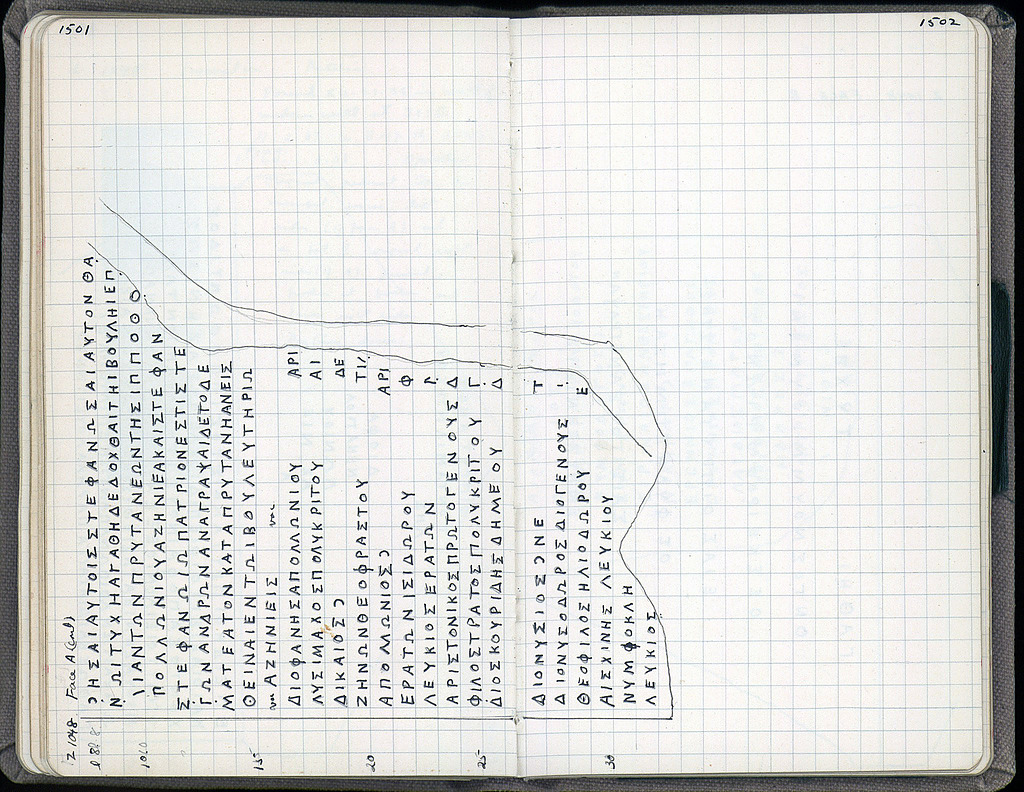 1501
1502
I 1048 Face A (cont)
ϽΗΣΑΙΑΥΤΟΙΣΣΤΕΦΑΝΩΣΑΙΑΥΤΟΝΘΑ
ΝΩΙΤΥΧΗΑΓΑΘΗΔΕΔΟΧΘΑΙΤΗΙΒΟΥΛΗΙΕΠ
10 ΙΑΝΤΩΝΠΡΥΤΑΝΕΩΝΤΗΣΙΠΠΟΘΟ
ΠΟΛΛΩΝΙΟΥΑΖΗΝΙΕΑΚΑΙΣΤΕΦΑΝ
ΣΤΕΦΑΝΩΙΩΠΑΤΡΙΟΝΕΣΤΙΣΤΕ
ΓΩΝΑΝΔΡΩΝΑΝΑΓΡΑΨΑΙΔΕΤΟΔΕ
ΜΑΤΕΑΤΟΝΚΑΤΑΠΡΥΤΑΝΗΑΝΕΙΣ
15 ΘΕΙΝΑΙΕΝΤΩΙΒΟΥΛΕΥΤΗΡΙΩ
vac ΑΖΗΝΙΕΙΣ vac
ΔΙΟΦΑΝΗΣΑΠΟΛΛΩΝΙΟΥ ΑΡΙ
ΛΥΣΙΜΑΧΟΣΠΟΛΥΚΡΙΤΟΥ ΑΙ
ΔΙΚΑΙΟΣϽ ΔΕ
20 ΖΗΝΩΝΘΕΟΦΡΑΣΤΟΥ ΤΙ
ΑΠΟΛΛΩΝΙΟΣϽ ΑΡΙ
ΕΡΑΤΩΝΙΣΙΔΩΡΟΥ Φ
ΛΕΥΚΙΟΣΕΡΑΤΩΝ
ΑΡΙΣΤΟΝΙΚΟΣΠΡΩΤΟΓΕΝΟΥΣ Δ
25 ΦΙΛΟΣΤΡΑΤΟΣΠΟΛΥΚΡΙΤΟΥ Γ
ΔΙΟΣΚΟΥΡΙΔΗΣΔΗΜΕΟΥ Δ
ΔΙΟΝΥΣΙΟΣϽΝΕ Τ
ΔΙΟΝΥΣΟΔΩΡΟΣΔΙΟΓΕΝΟΥΣ Ι
ΘΕΟΦΙΛΟΣΗΛΙΟΔΩΡΟΥ Ε
30 ΑΙΣΧΙΝΗΣΛΕΥΚΙΟΥ
ΝΥΜΦΟΚΛΗ
ΛΕΥΚΙΟΣ